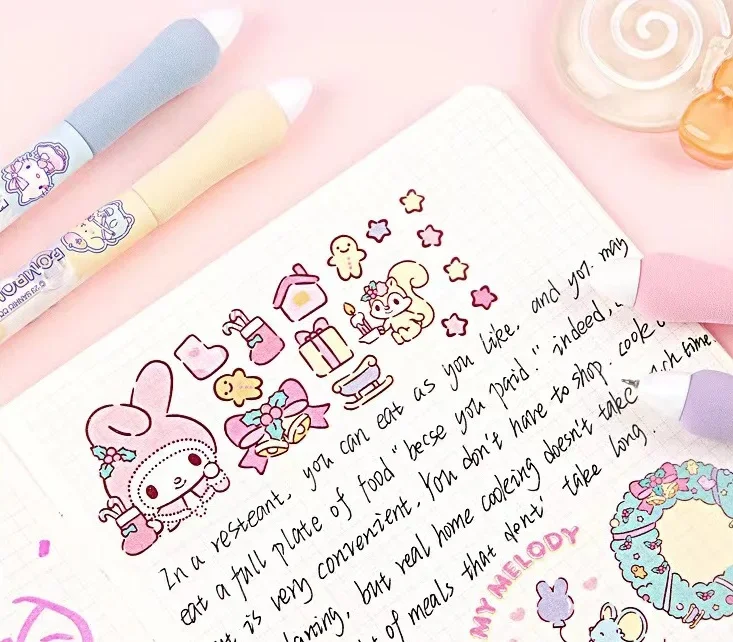 In a resteant, you can eat as you like, and you may
eat a full plate of food "becse you paid." indeed,
it is very convenient. You don't have to shop. cook
but real home cooking doesn't take much time.
of meals that dont' take long.
MY MELODY
POMPO